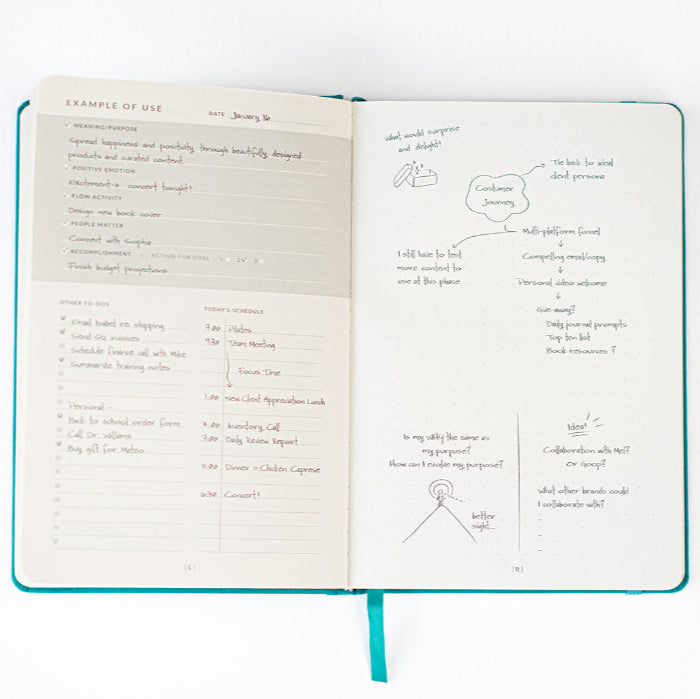 EXAMPLE OF USE
DATE January, 16
MEANING/PURPOSE
Spread happiness and positivity through beautifully designed
products and curated content.
POSITIVE EMOTION
Excitement → concert tonight!
FLOW ACTIVITY
Design new book cover
PEOPLE MATTER
Connect with Sophia
ACCOMPLISHMENT | ACTION FOR GOAL 1 2 3
Finish budget projections
OTHER TO DOS
Email Isabel re: shipping
Send Q2 invoices
Schedule finance call with Mike
Summarize training notes
Personal -
Back to school order form
Call Dr. Williams
Buy gift for Mateo
TODAY'S SCHEDULE
7:00 Pilates
9:30 Team Meeting
Focus Time
1:00 New Client Appreciation Lunch
Inventory Call
Daily Review Report
Dinner = Chicken Caprese
6:30 Concert!
[L]
what would surprise
and delight?
Costumer
Journey
Tie back to ideal
client persona
Multi-platform funnel
I still have to test
more content to
use at this phase
Compelling email/copy
Personal video welcome
Give-away?
Daily journal prompts
Top ten list
Book resources ?
Is my why the same as
my purpose?
How can I evolve my purpose?
better
sight...
Idea!
Collaboration with Mel?
or Goop?
What other brands could
I collaborate with?
-
-
-
[R]